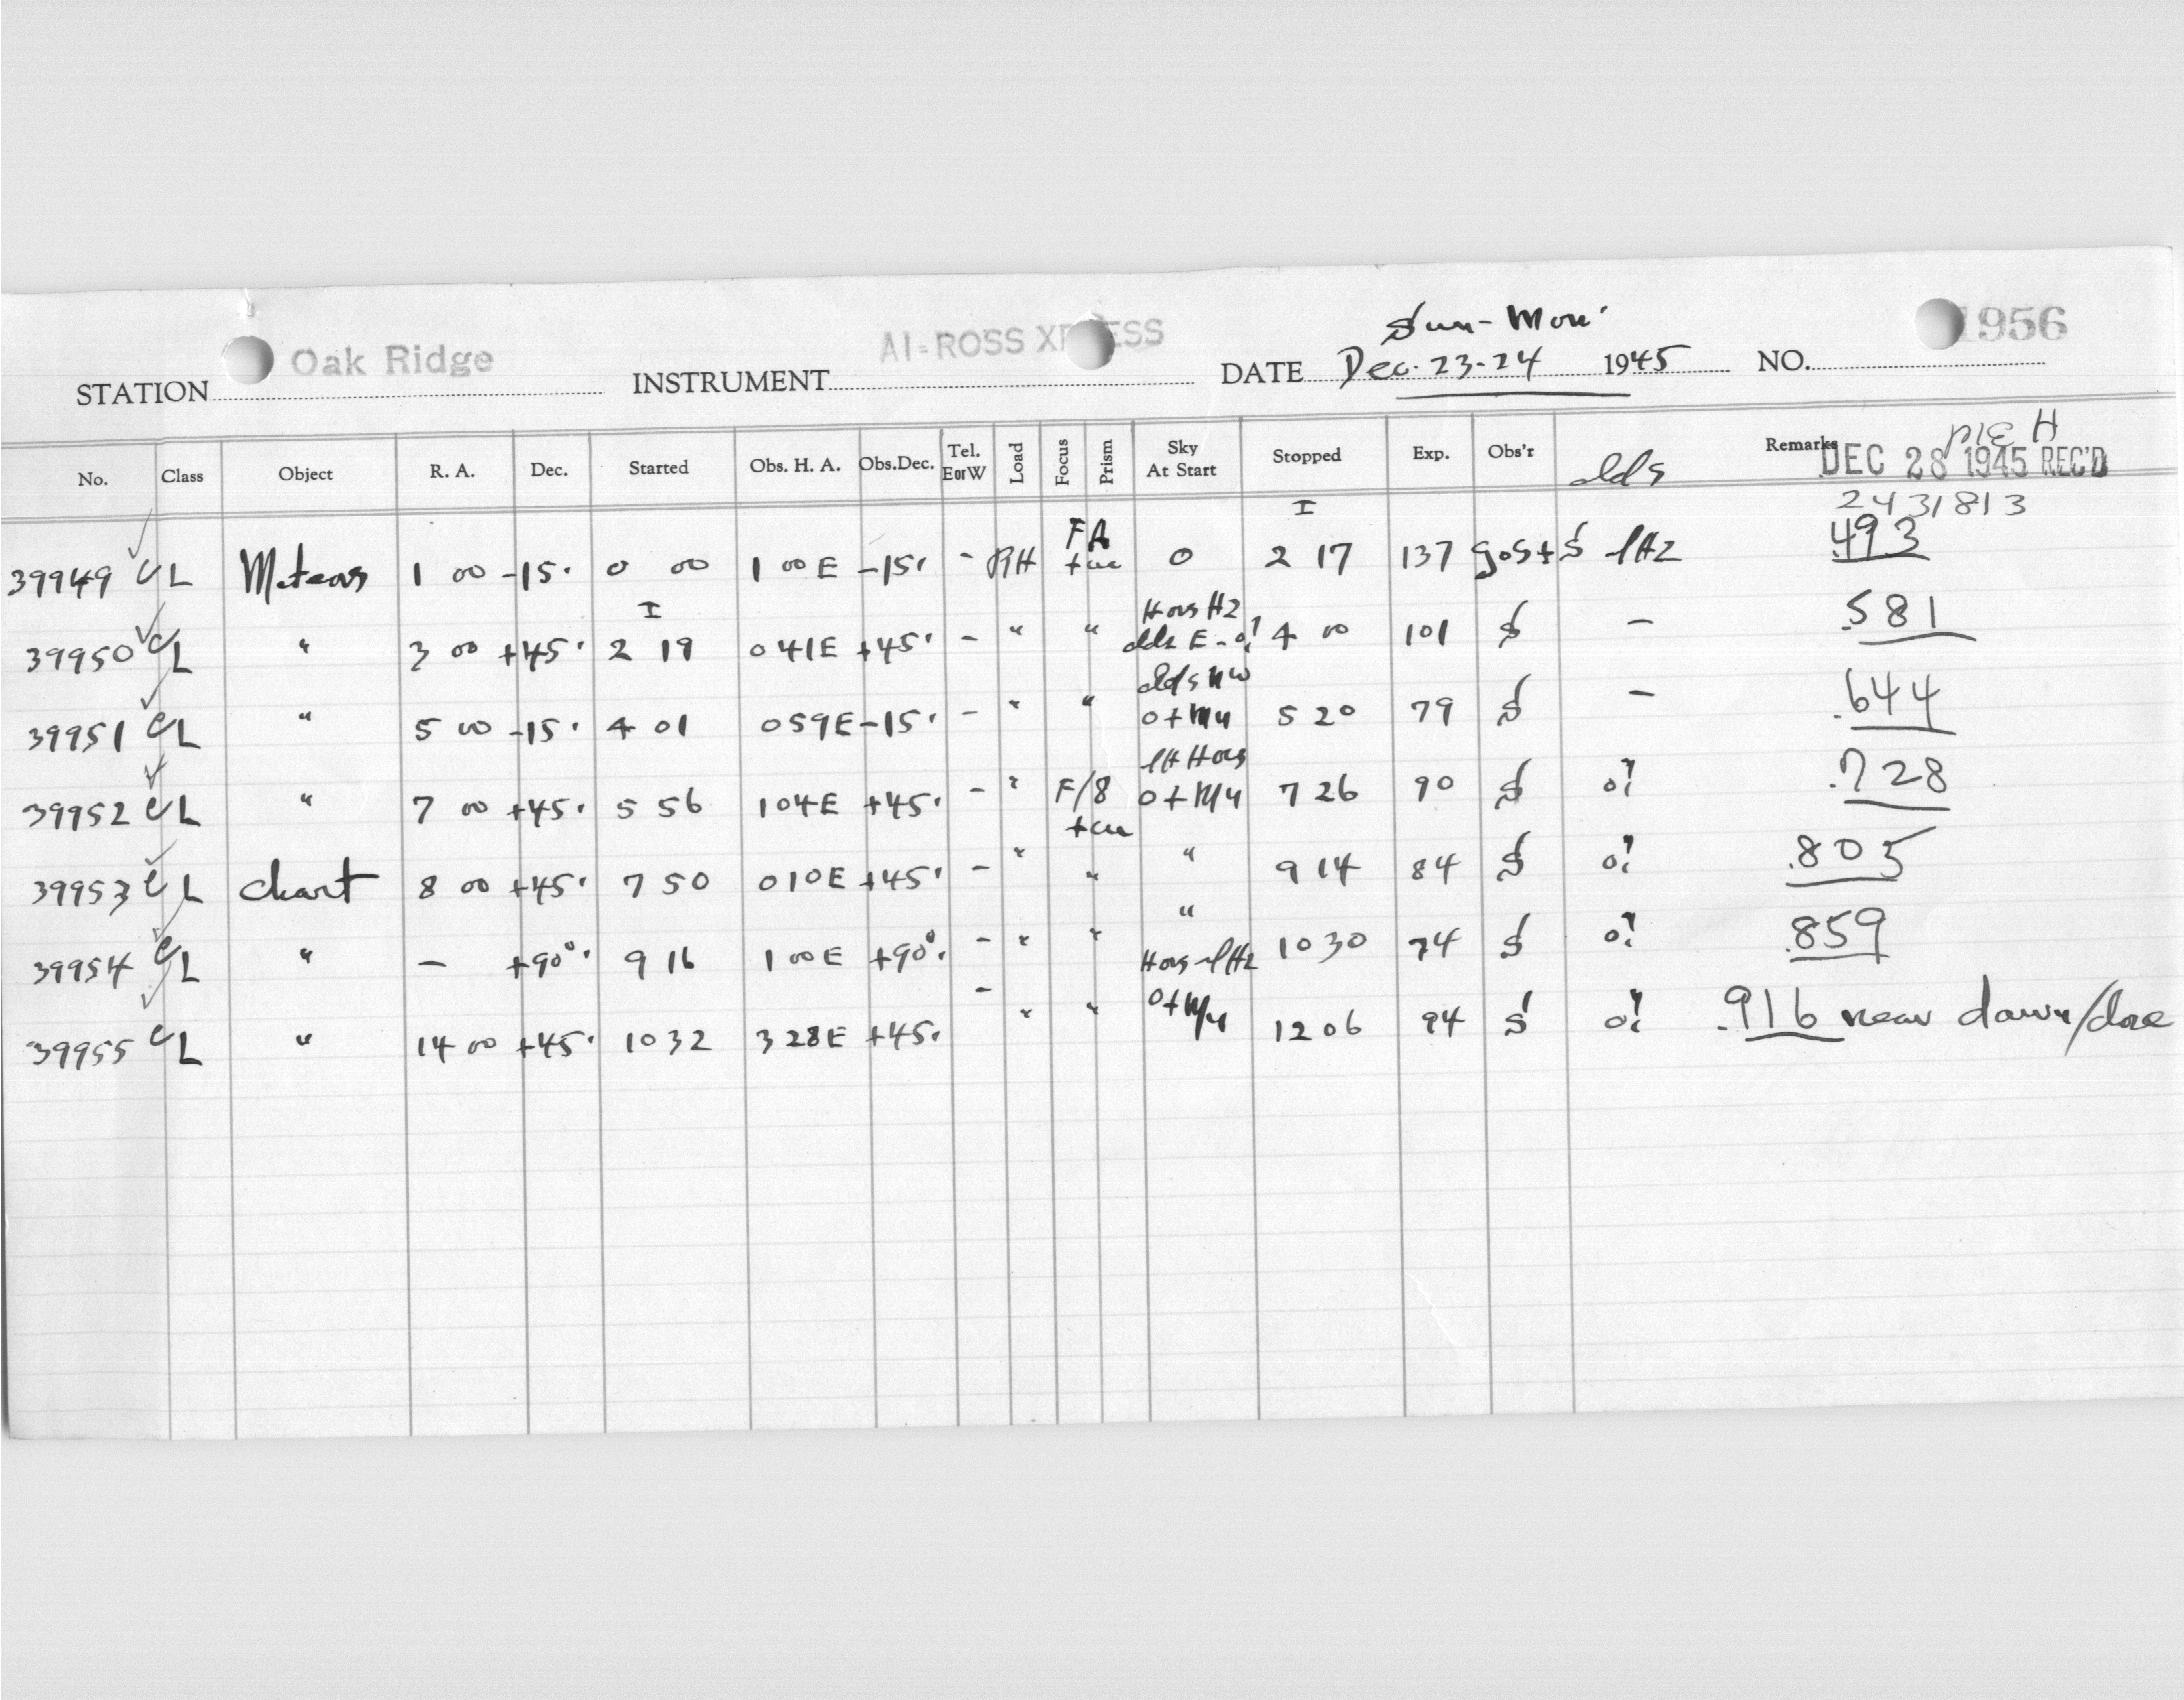 Sun - Mon.
STATION Oak Ridge INSTRUMENT AI=ROSS XPRESS DATE Dec. 23-24 1945 NO. 1956
No. Class Object R. A. Dec. Started Obs. H. A. Obs.Dec. Tel. E or W Load Focus Prism Sky At Start Stopped Exp. Obs'r clds Remarks
DEC 28 1945 REC'D
2431813
39949 CL Meteors 1 00 -15° 0 00 1 00 E -15° - 0 2 17 137 .493
39950 CL " 3 00 +45° 2 19 0 41E +45° - " " 4 00 101 S - .581
39951 CL " 5 00 -15° 4 01 0 59E -15° - " " 5 20 79 S - .644
39952 CL " 7 00 +45° 5 56 1 04E +45° - " F/8 7 26 90 S 0! .728
39953 CL Chart 8 00 +45° 7 50 0 10E +45° - " " " 9 14 84 S 0! .805
39954 CL " - +90° 9 16 1 00E +90° - " " " 10 30 74 S 0! .859
39955 CL " 14 00 +45° 10 32 3 28E +45° - " " 12 06 94 S 0! .916 near dawn/close